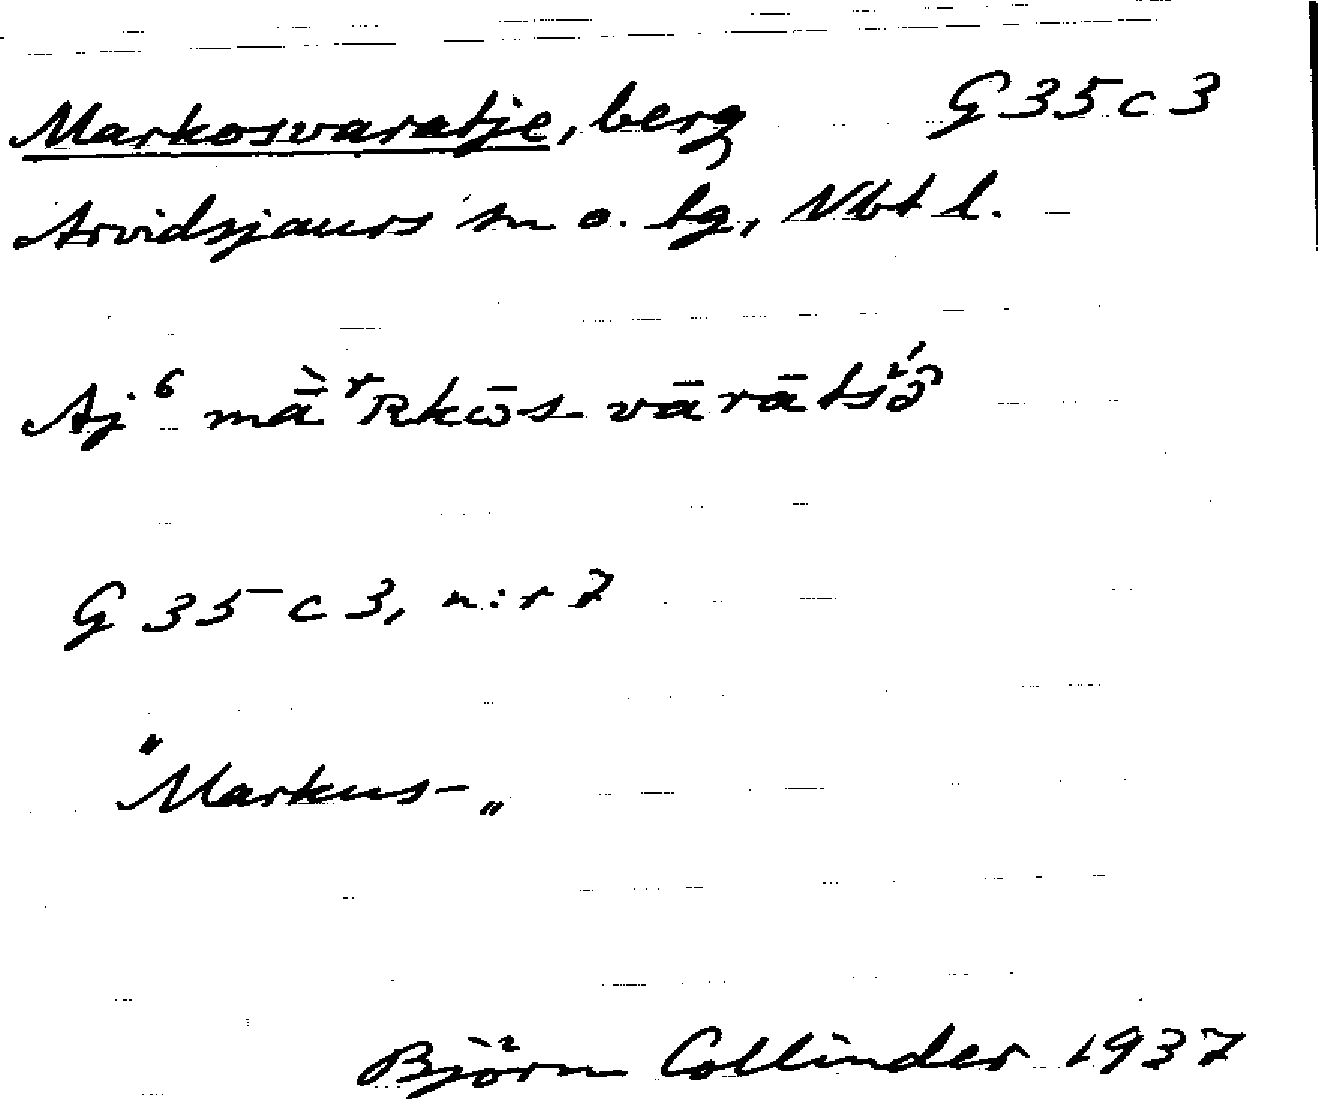 Markosvaratje, berg G 35 c 3
Arvidsjaurs sn o. tg, Nbt l.
Aj 6
G 35 c 3, n:r 7
"Markus-"
Björn Collinder 1937